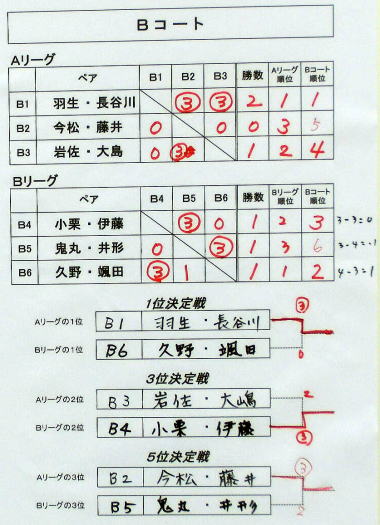 Bコート
Aリーグ
ペア B1 B2 B3 勝数 Aリーグ順位 Bコート順位
B1 羽生・長谷川 3 3 2 1 1
B2 今松・藤井 0 0 0 3 5
B3 岩佐・大島 0 3 1 2 4
Bリーグ
ペア B4 B5 B6 勝数 Bリーグ順位 Bコート順位
B4 小栗・伊藤 3 0 1 2 3 3-3=0
B5 鬼丸・井形 0 3 1 3 6 3-4=-1
B6 久野・颯田 3 1 1 1 2 4-3=1
1位決定戦
3
Aリーグの1位 B1 羽生・長谷川
Bリーグの1位 B6 久野・颯田
0
3位決定戦
2
Aリーグの2位 B3 岩佐・大嶋
Bリーグの2位 B4 小栗・伊藤
3
5位決定戦
3
Aリーグの3位 B2 今松・藤井
Bリーグの3位 B5 鬼丸・井形
2